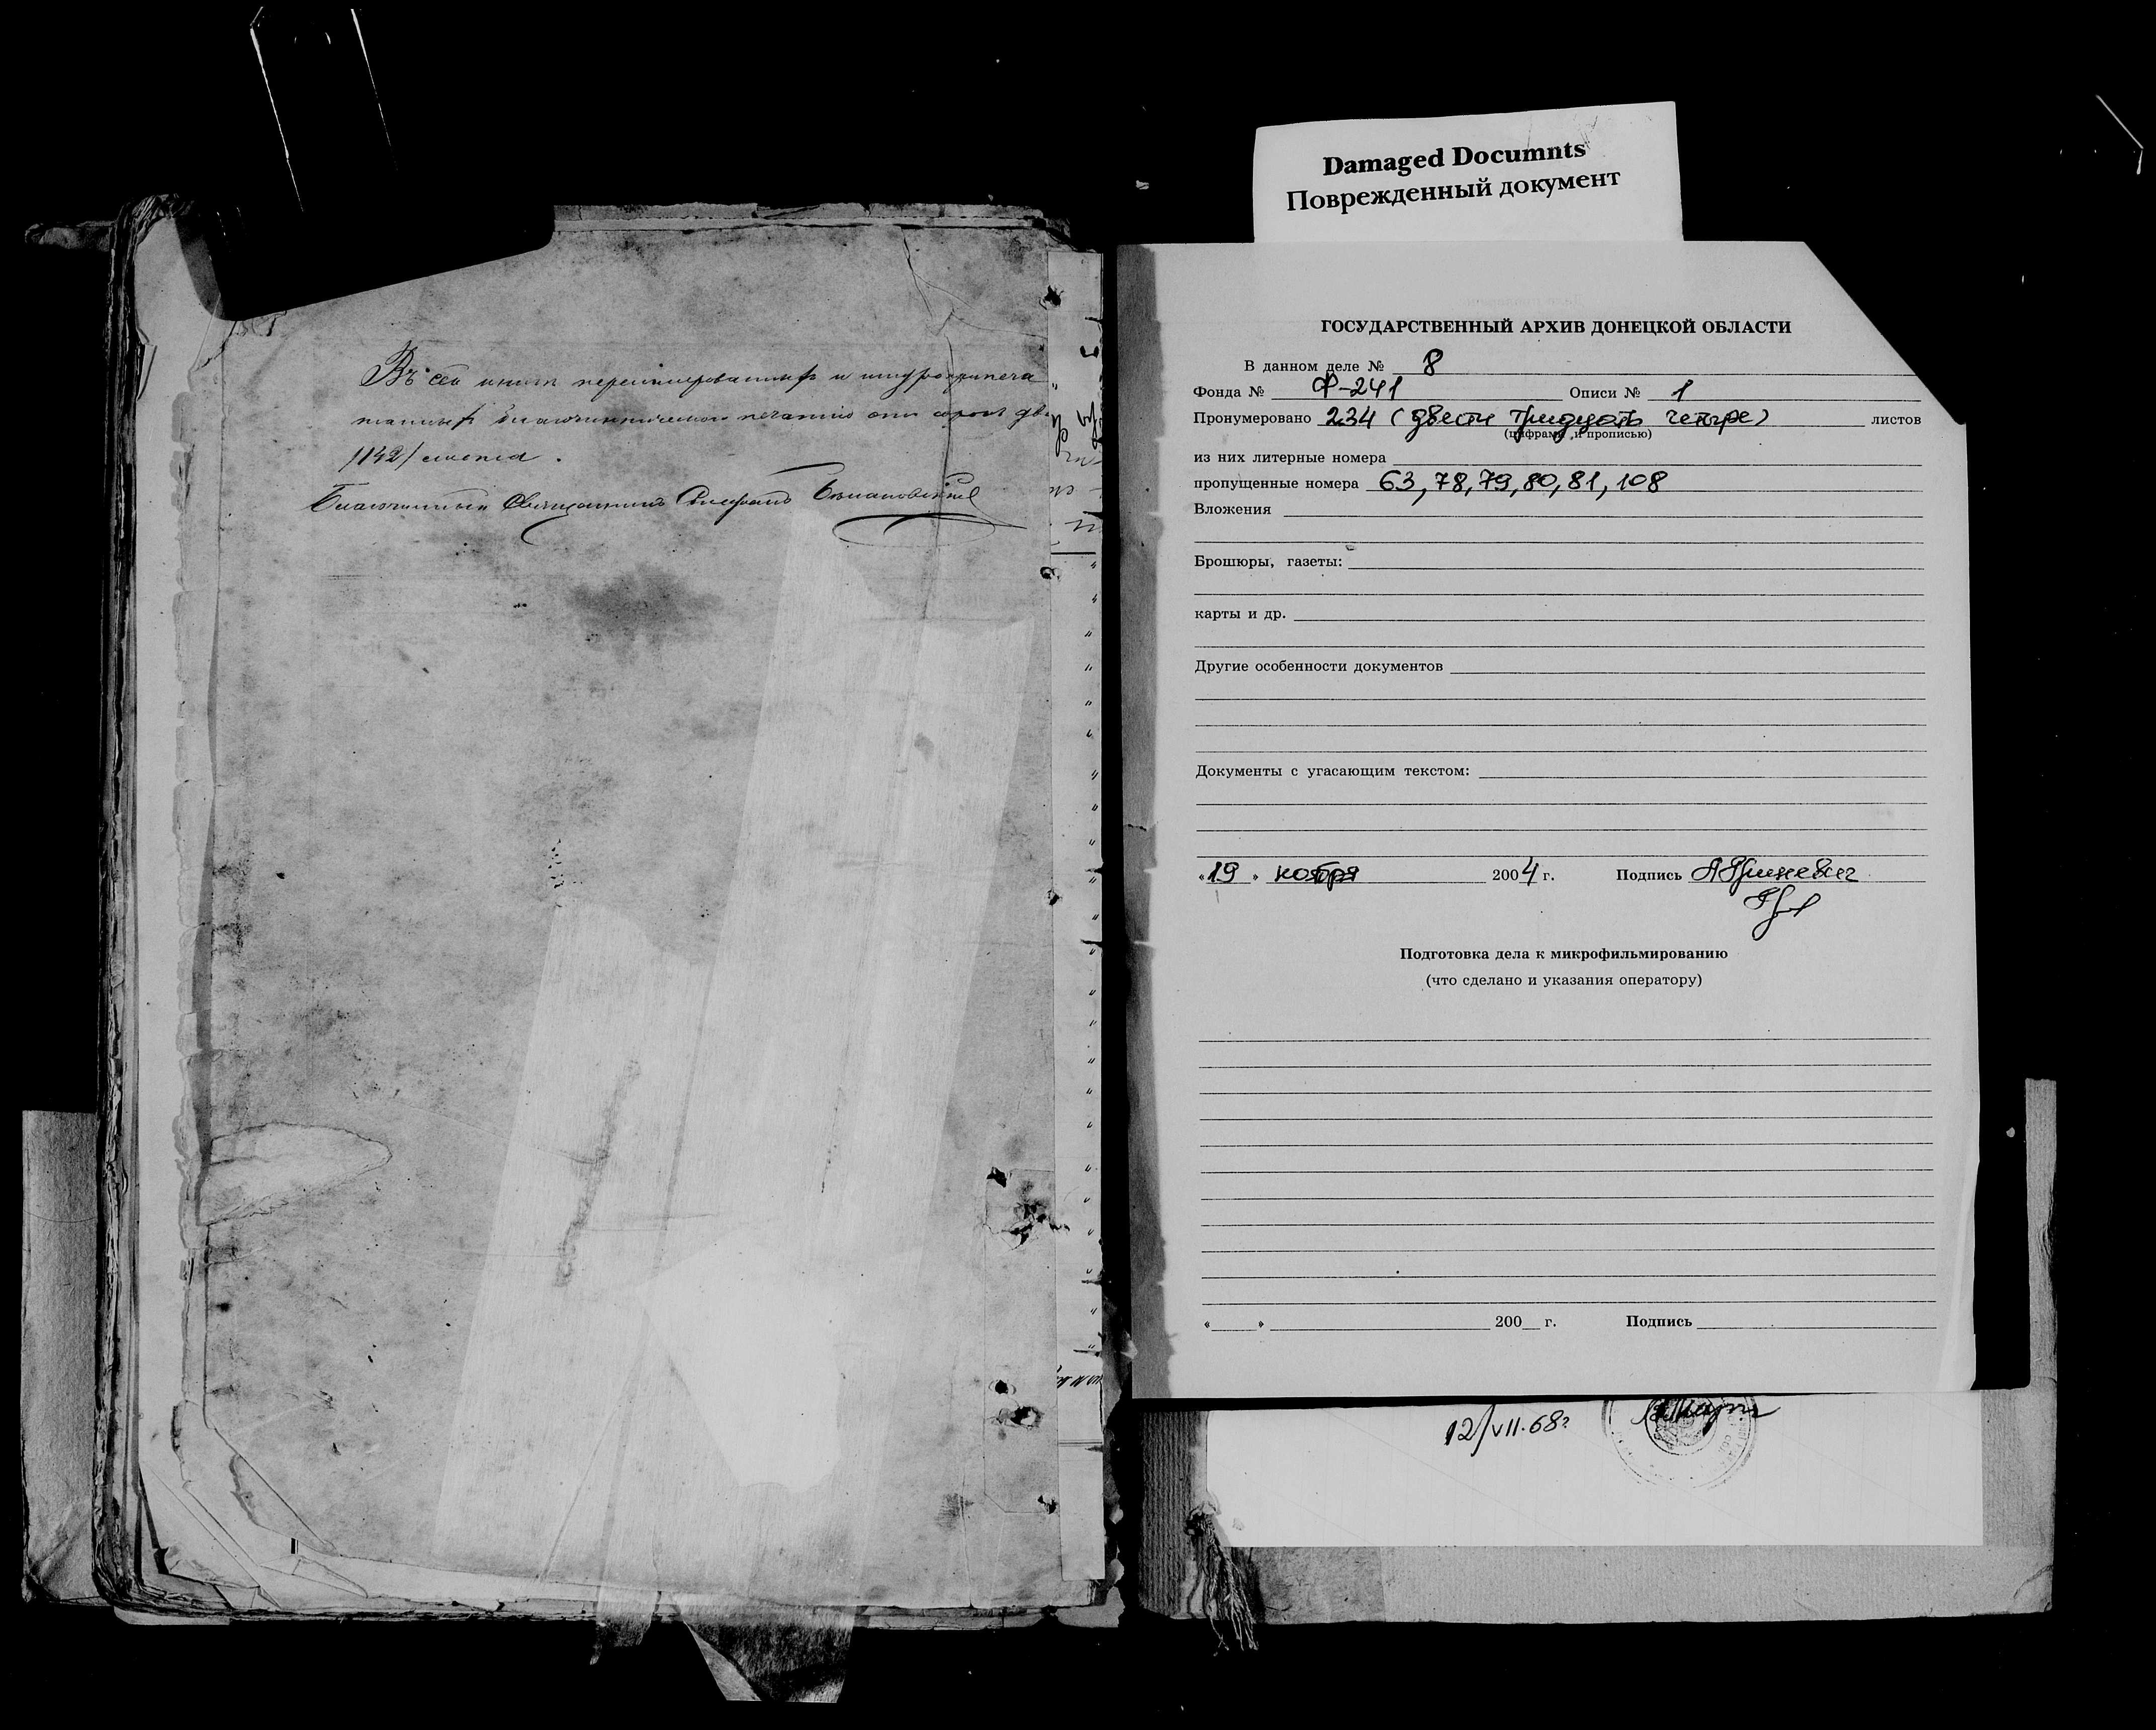 Въ сей книгѣ перенумерованныхъ и шнуроприпеча
танныхъ благочинническою печатью сто сорокъ два
/142/ листа.
Благочинный Священникъ
Damaged Documnts
Поврежденный документ
ГОСУДАРСТВЕННЫЙ АРХИВ ДОНЕЦКОЙ ОБЛАСТИ
В данном деле № 8
Фонда № Ф-241 Описи № 1
Пронумеровано 234 (двести тридцать четыре) листов
(цифрами и прописью)
из них литерные номера
пропущенные номера 63, 78, 79, 80, 81, 108
Вложения
Брошюры, газеты:
карты и др.
Другие особенности документов
Документы с угасающим текстом:
«19» ноября 2004 г. Подпись
Подготовка дела к микрофильмированию
(что сделано и указания оператору)
« » 200 г. Подпись
12/VII.68г